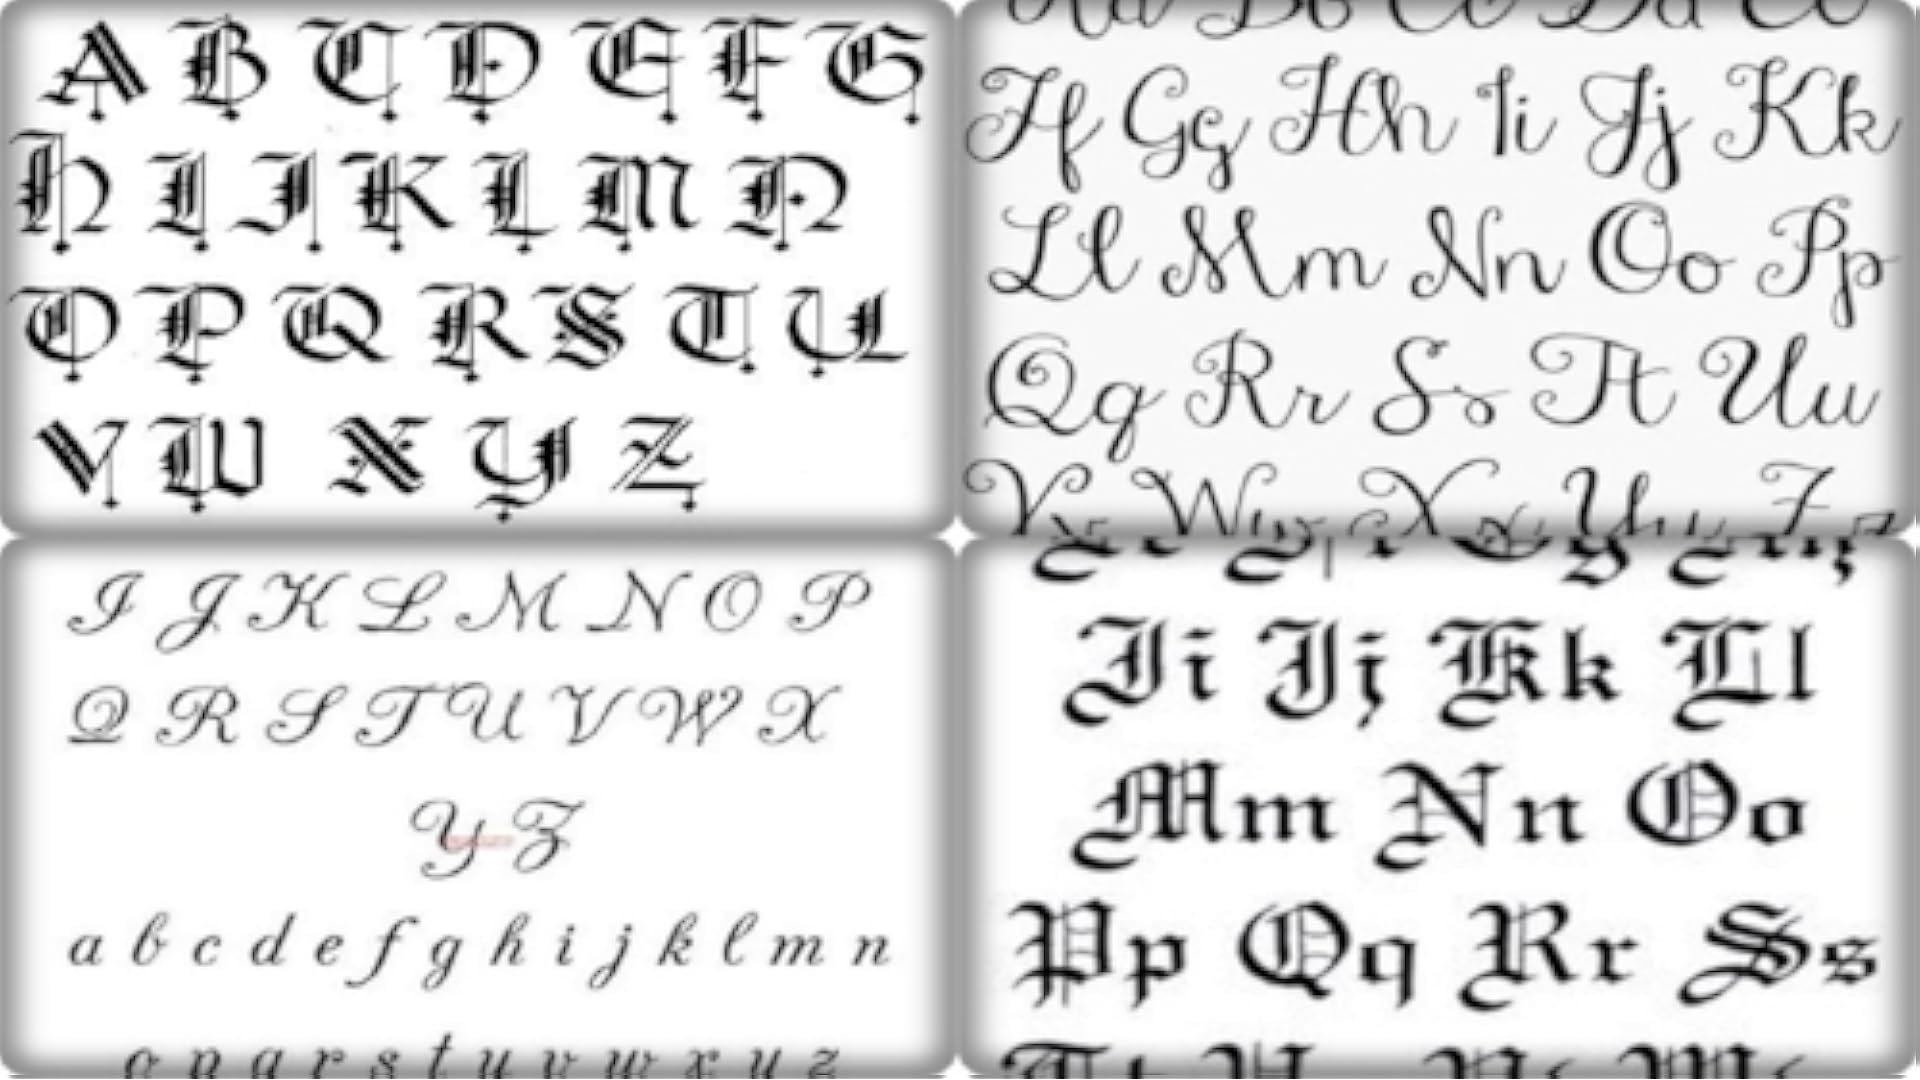 A B C D E F G
H I J K L M N
O P Q R S T U
V W X Y Z
Aa Bb Cc Dd Ee
Ff Gg Hh Ii Jj Kk
Ll Mm Nn Oo Pp
Qq Rr Ss Tt Uu
Vv Ww Xx Yy Zz
I J K L M N O P
Q R S T U V W X
Y Z
a b c d e f g h i j k l m n
o p q r s t u v w x y z
Ii Jj Kk Ll
Mm Nn Oo
Pp Qq Rr Ss